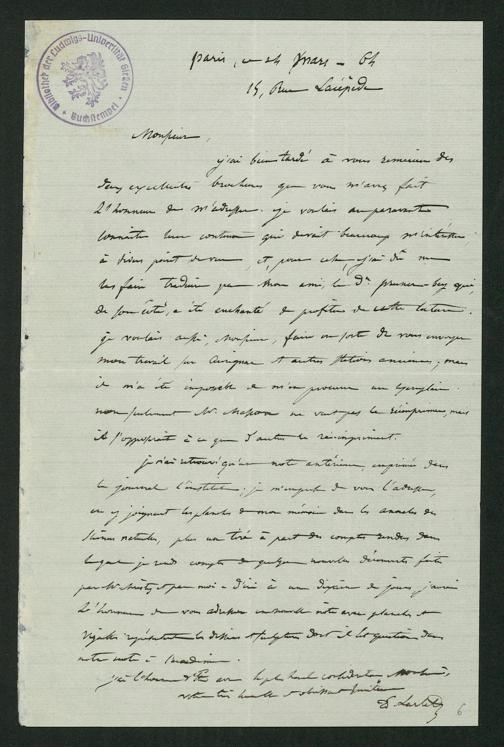 Bibliothek der Ludwigs-Universität Giessen
Buchstempel
Paris, ce 24 Mars - 64
15, Rue Lacépède
Monsieur,
j'ai bien tardé à vous remercier des
deux excellentes brochures que vous m'avez fait
l'honneur de m'adresser. je voulais auparavant
connaître leur contenu qui devait beaucoup m'intéresser
à divers point de vue, et, pour cela, j'ai dû me
les faire traduire par mon ami, le Dr. Pruner-bey qui,
de son côté, a été enchanté de profiter de cette lecture.
je voulais aussi, Monsieur, faire en sorte de vous envoyer
mon travail sur Aurignac et autres stations anciennes; mais
il m'a été impossible de m'en procurer un exemplaire.
non seulement Mr. Masson ne veut pas le réimprimer, mais
il s'opposerait à ce que d'autres le réimpriment.
je n'ai retrouvé qu'une note antérieure, imprimée dans
le journal l'institut; je m'empresse de vous l'adresser,
en y joignant les planches de mon mémoire dans les annales des
Sciences naturelles, plus un tiré à part des comptes rendus dans
lequel je rends compte de quelques nouvelles découvertes faites
par Mr Christy et par moi - d'ici à une dizaine de jours j'aurai
l'honneur de vous adresser une nouvelle note avec planches et
vignettes représentant les dessins et sculptures dont il est question dans
notre note à l'académie.
j'ai l'honneur d'être avec la plus haute considération Monsieur,
votre très humble et obéissant serviteur
Ed. Lartet
6